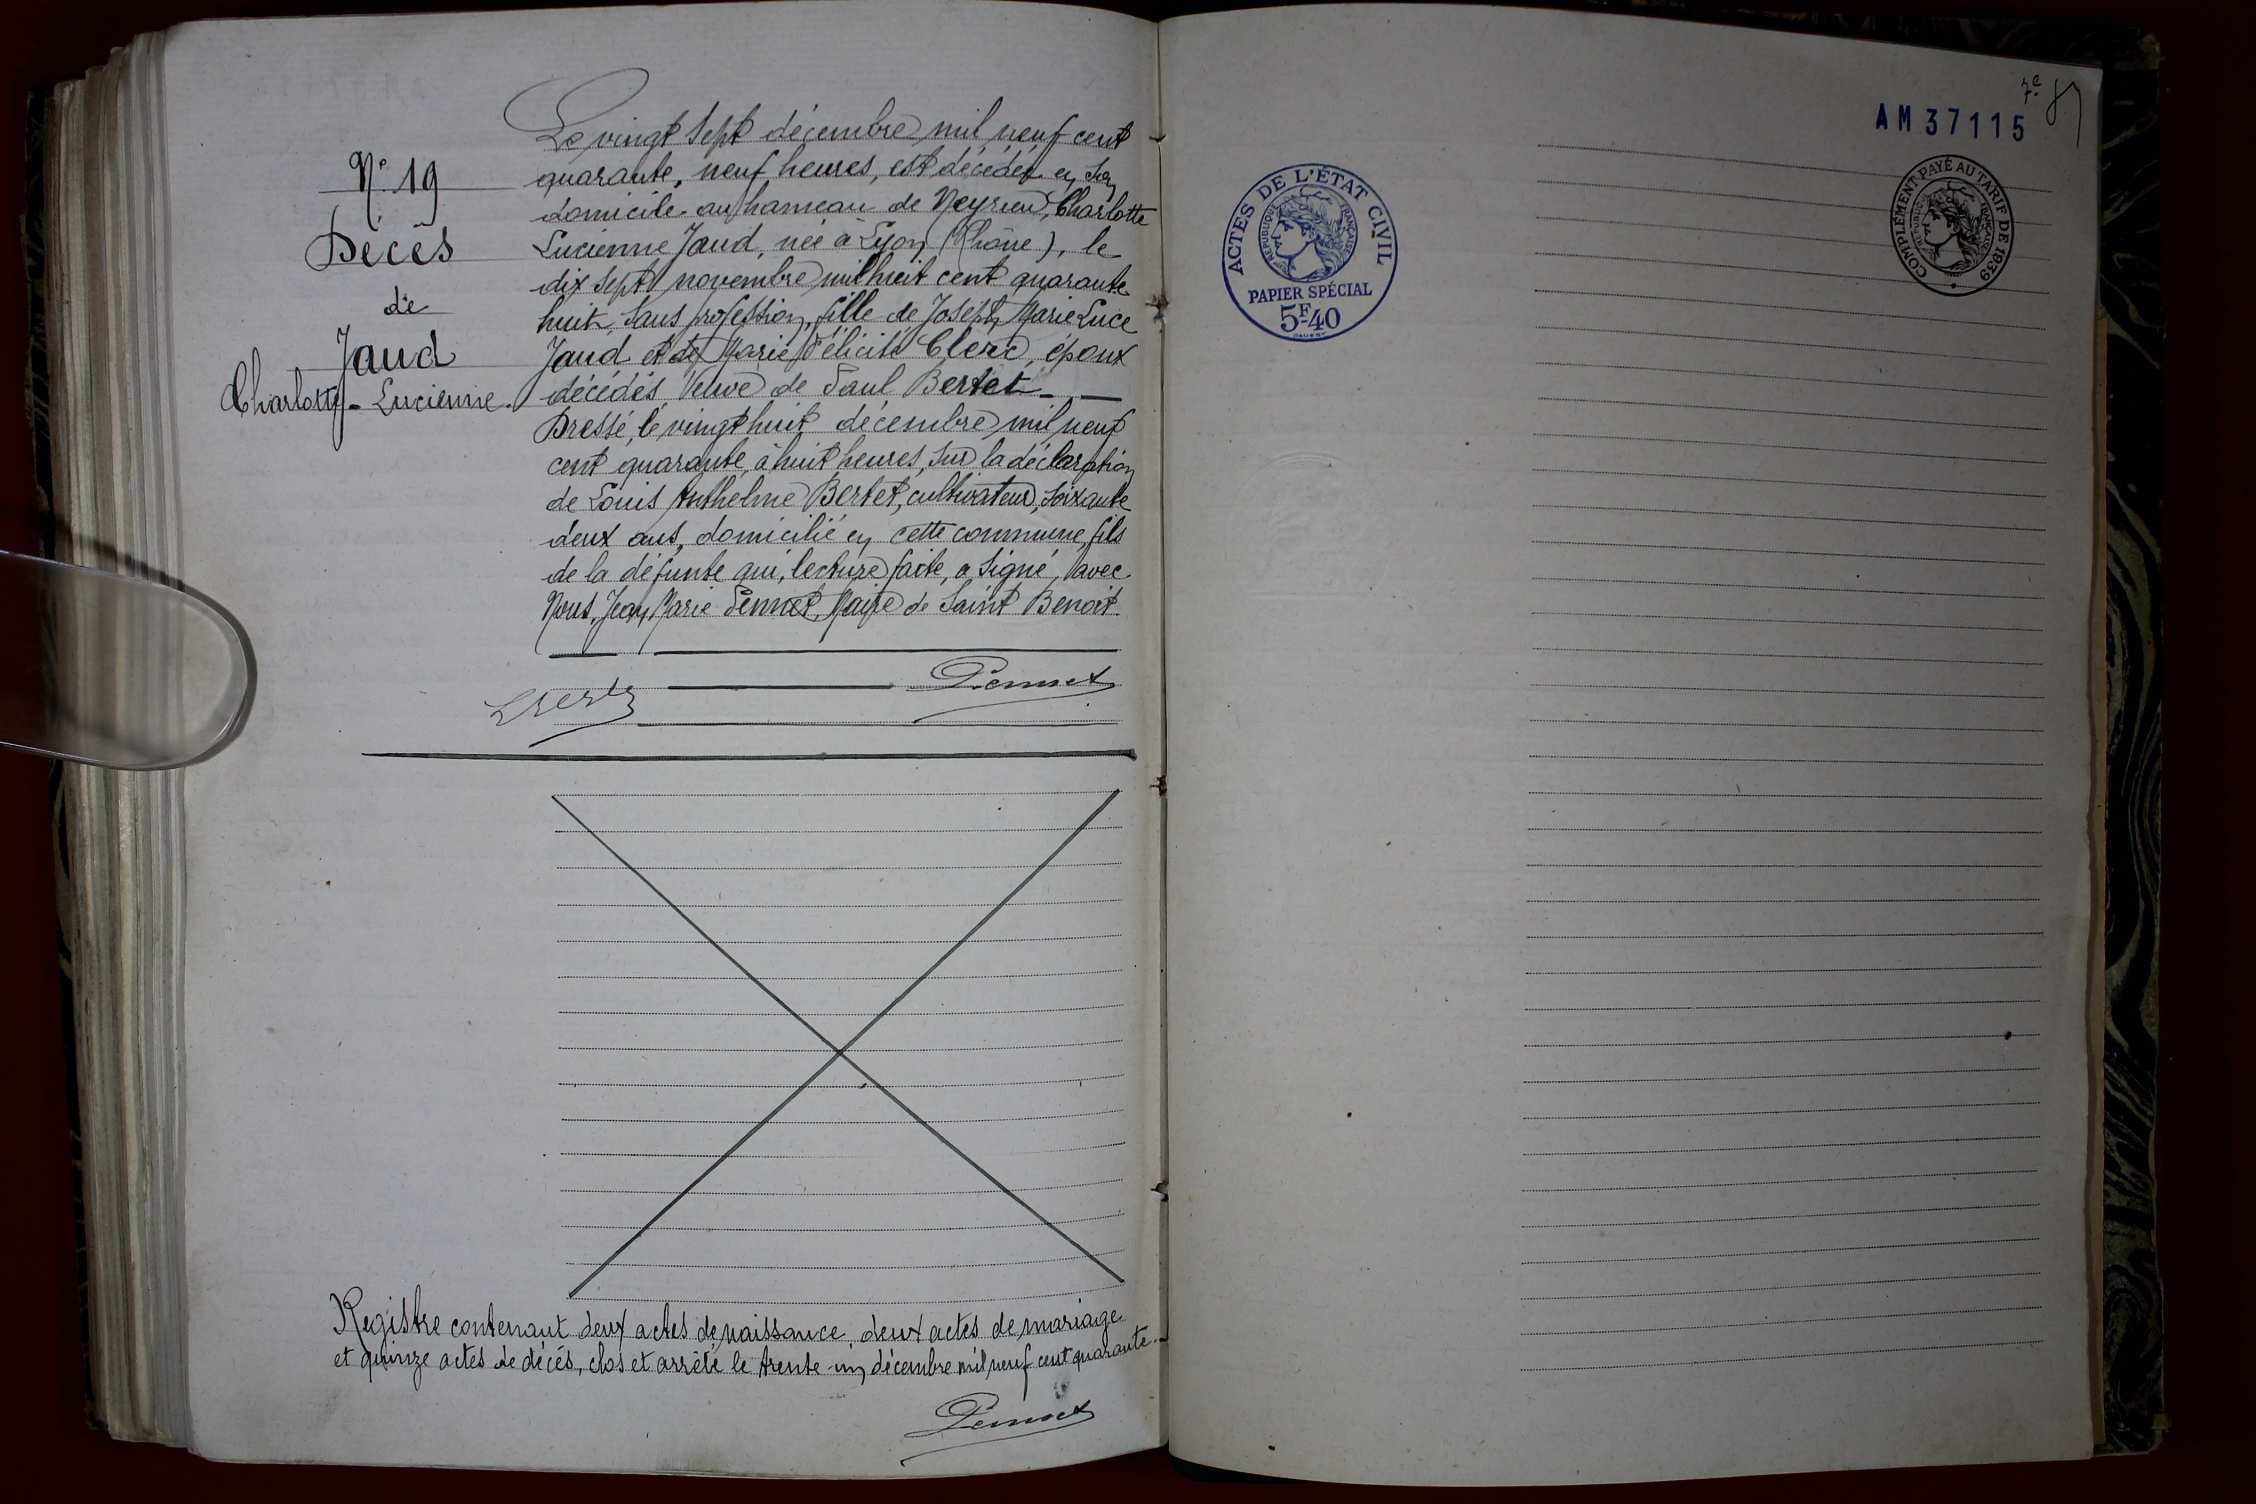 N° 19
Décès
de
Jaud
Charlotte - Lucienne.
Le vingt sept décembre mil neuf cent
quarante, neuf heures, est décédée en son
domicile au hameau de Neyrieu, Charlotte
Lucienne Jaud, née à Lyon (Rhône), le
dix sept novembre mil huit cent quarante
huit, sans profession, fille de Joseph Marie Luce
Jaud et de Marie Félicité Clerc, époux
décédés, Veuve de Paul Bertet.
Dressé, le vingt huit décembre mil neuf
cent quarante, à huit heures, sur la déclaration
de Louis Anthelme Bertet, cultivateur, soixante
deux ans, domicilié en cette commune, fils
de la défunte qui, lecture faite, a signé, avec
Nous, Jean Marie Pennet, Maire de Saint Benoit.
Pennet
Registre contenant deux actes de naissance deux actes de mariage
et quinze actes de décés, clos et arrêté le trente-un décembre mil neuf cent quarante.
Pennet
AM 37115
ACTES DE L'ÉTAT CIVIL
RÉPUBLIQUE FRANÇAISE
PAPIER SPÉCIAL
5F40
COMPLÉMENT PAYÉ AU TARIF DE 1939
RÉPUBLIQUE FRANÇAISE